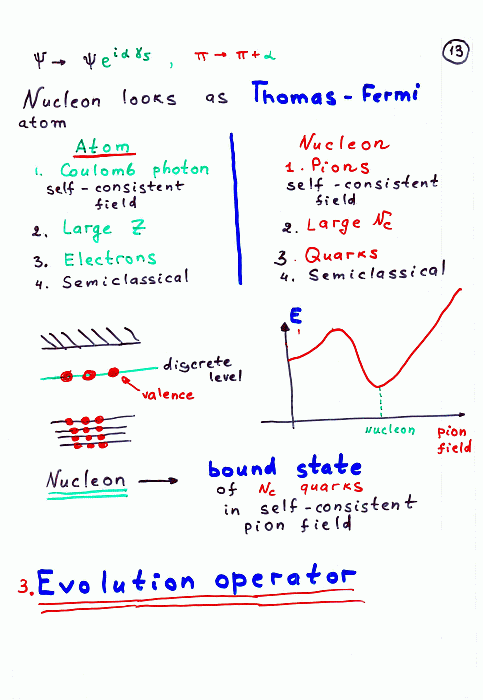 13
Ψ → Ψ e^{iαγ5} , π → π + α
Nucleon looks as Thomas - Fermi
atom
Atom
1. Coulomb photon
self - consistent
field
2. Large Z
3. Electrons
4. Semiclassical
Nucleon
1. Pions
self - consistent
field
2. Large Nc
3. Quarks
4. Semiclassical
discrete
level
valence
E
nucleon
pion
field
Nucleon → bound state
of Nc quarks
in self - consistent
pion field
3. Evolution operator